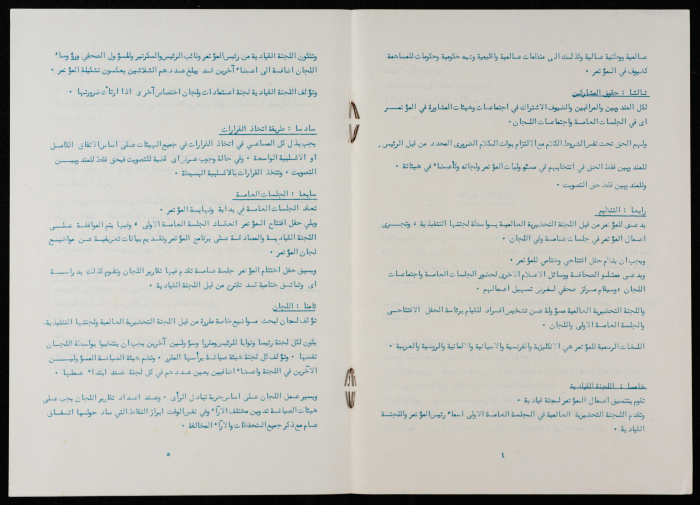 عالمية ووطنية عمالية وكذلك الى منظمات عالمية واقليمية وشبه حكومية وحكومات للمساهمة
كضيوف في المؤتمر .
ثالثا : حقوق المشاركين
لكل المندوبين والمراقبين والضيوف الاشتراك في اجتماعات وهيئات المشاورة في المؤتمر
اى في الجلسات العامة واجتماعات اللجان .
ولهم الحق تحت نفس الشروط الكلام مع الالتزام بوقت الكلام الضرورى المحدد من قبل الرئيس .
للمندوبين فقط الحق في انتخابهم في مسئوليات المؤتمر ولجانه وكأعضاء في هيئاته .
وللمندوبين فقط حق التصويت .
رابعا : التنظيم
يدعى للمؤتمر من قبل اللجنة التحضيرية العالمية بواسطة لجنتها التنفيذية ، وتجرى
اعمال المؤتمر في جلسات عامة وفي اللجان .
ويجب ان ينظم حفل افتتاحي وختامي للمؤتمر .
ويدعى ممثلو الصحافة ووسائل الاعلام الاخرى لحضور الجلسات العامة واجتماعات
اللجان ، وسيقام مركز صحفي لغرض تسهيل اعمالهم .
واللجنة التحضيرية العالمية مسؤولة عن تشخيص افراد للقيام برئاسة الحفل الافتتاحي
والجلسة العامة الاولى واللجان .
اللغات الرسمية للمؤتمر هي الانكليزية والفرنسية والاسبانية والالمانية والروسية والعربية .
خامسا : اللجنة القيادية
تقوم بتنسيق اعمال المؤتمر لجنة قيادية .
وتقدم اللجنة التحضيرية العالمية في الجلسة العامة الاولى اسماء رئيس المؤتمر واللجنة
القيادية .
٤
وتتكون اللجنة القيادية من رئيس المؤتمر ونائب الرئيس والسكرتير والمسؤول الصحفي ورؤساء
اللجان اضافة الى اعضاء آخرين قد يبلغ عددهم الثلاثين يعكسون تشكيلة المؤتمر .
وتؤلف اللجنة القيادية لجنة اعتمادات ولجان اختصاص أخرى اذا ارتأت ضرورتها .
سادسا : طريقة اتخاذ القرارات
يجب بذل كل المساعي في اتخاذ القرارات في جميع الهيئات على اساس الاتفاق الكامل
او الاغلبية الواسعة . وفي حالة وجوب عرض اى قضية للتصويت فيحق فقط للمندوبين
التصويت . وتتخذ القرارات بالاغلبية البسيطة .
سابعا : الجلسات العامة
تعقد الجلسات العامة في بداية ونهاية المؤتمر .
ويلي حفل افتتاح المؤتمر انعقاد الجلسة العامة الاولى ، وفيها يتم الموافقة على
اللجنة القيادية والمصادقة على برنامج المؤتمر وتقديم بيانات تعريفية عن مواضيع
لجان المؤتمر .
ويسبق حفل اختتام المؤتمر جلسة عامة تقدم فيها تقارير اللجان وتقوم كذلك بدراسة
اى وثائق ختامية قد تقترح من قبل اللجنة القيادية .
ثامنا : اللجان
تؤلف لجان لبحث مواضيع خاصة مقررة من قبل اللجنة التحضيرية العالمية ولجنتها التنفيذية .
يكون لكل لجنة رئيسا ونوابا للرئيس ومقررا ومسؤولين آخرين يجب ان ينتخبوا بواسطة اللجان
نفسها . وتؤلف كل لجنة هيئة صياغة يرأسها المقرر . وتضم هيئة الصياغة المسؤوليــن
الآخرين في اللجنة واعضاء اضافيين يعين عددهم في كل لجنة عند ابتداء عملها .
ويسير عمل اللجان على اساس حرية تبادل الرأى . وعند اعداد تقارير اللجان يجب على
هيئات الصياغة تدوين مختلف الآراء وفي نفس الوقت ابراز النقاط التي ساد حولها اتفاق
عام مع ذكر جميع التحفظات والآراء المخالفة .
٥